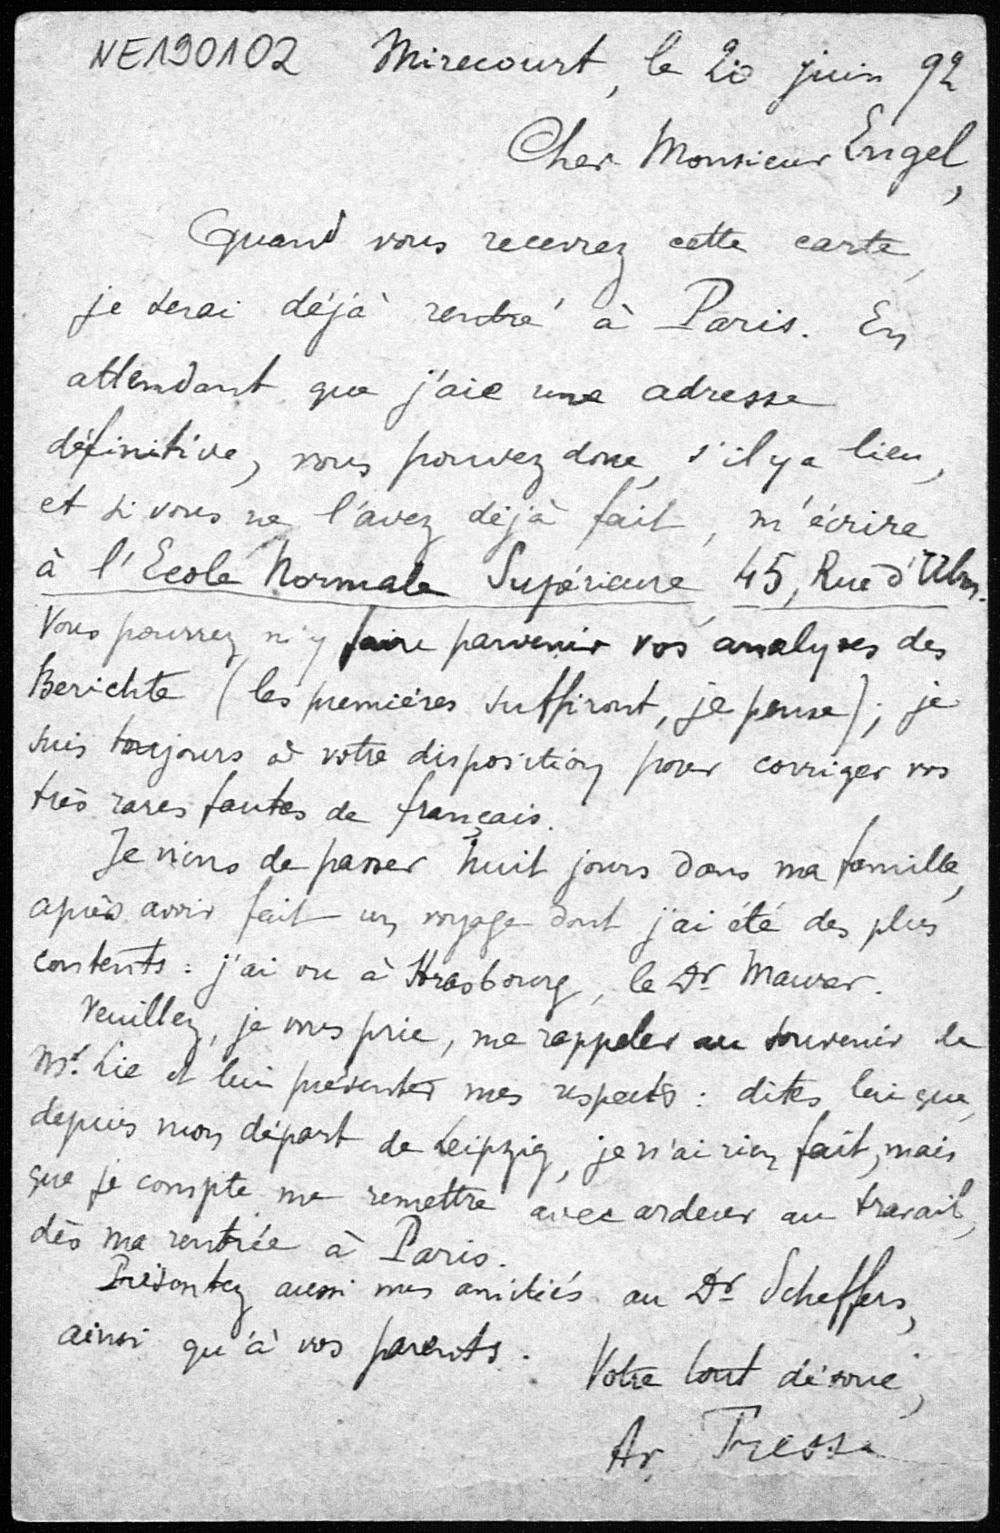 NE190102 Mirecourt, le 20 juin 92
Cher Monsieur Engel,
Quand vous recevrez cette carte,
je serai déjà rentré à Paris. En
attendant que j'aie une adresse
définitive, vous pouvez donc, s'il y a lieu,
et si vous ne l'avez déjà fait, m'écrire
à l'Ecole Normale Supérieure 45, Rue d'Ulm.
Vous pourrez m'y faire parvenir vos analyses des
Berichte (les premières suffiront, je pense); je
suis toujours à votre disposition pour corriger vos
très rares fautes de français.
Je viens de passer huit jours dans ma famille,
après avoir fait un voyage dont j'ai été des plus
contents : j'ai vu à Strasbourg, le Dr Maurer.
Veuillez, je vous prie, me rappeler au souvenir de
Mr. Lie et lui présenter mes respects : dites lui que,
depuis mon départ de Leipzig, je n'ai rien fait, mais
que je compte me remettre avec ardeur au travail,
dès ma rentrée à Paris.
Présentez aussi mes amitiés au Dr Scheffers,
ainsi qu'à vos parents.
Votre tout dévoué,
Ar. Tresse